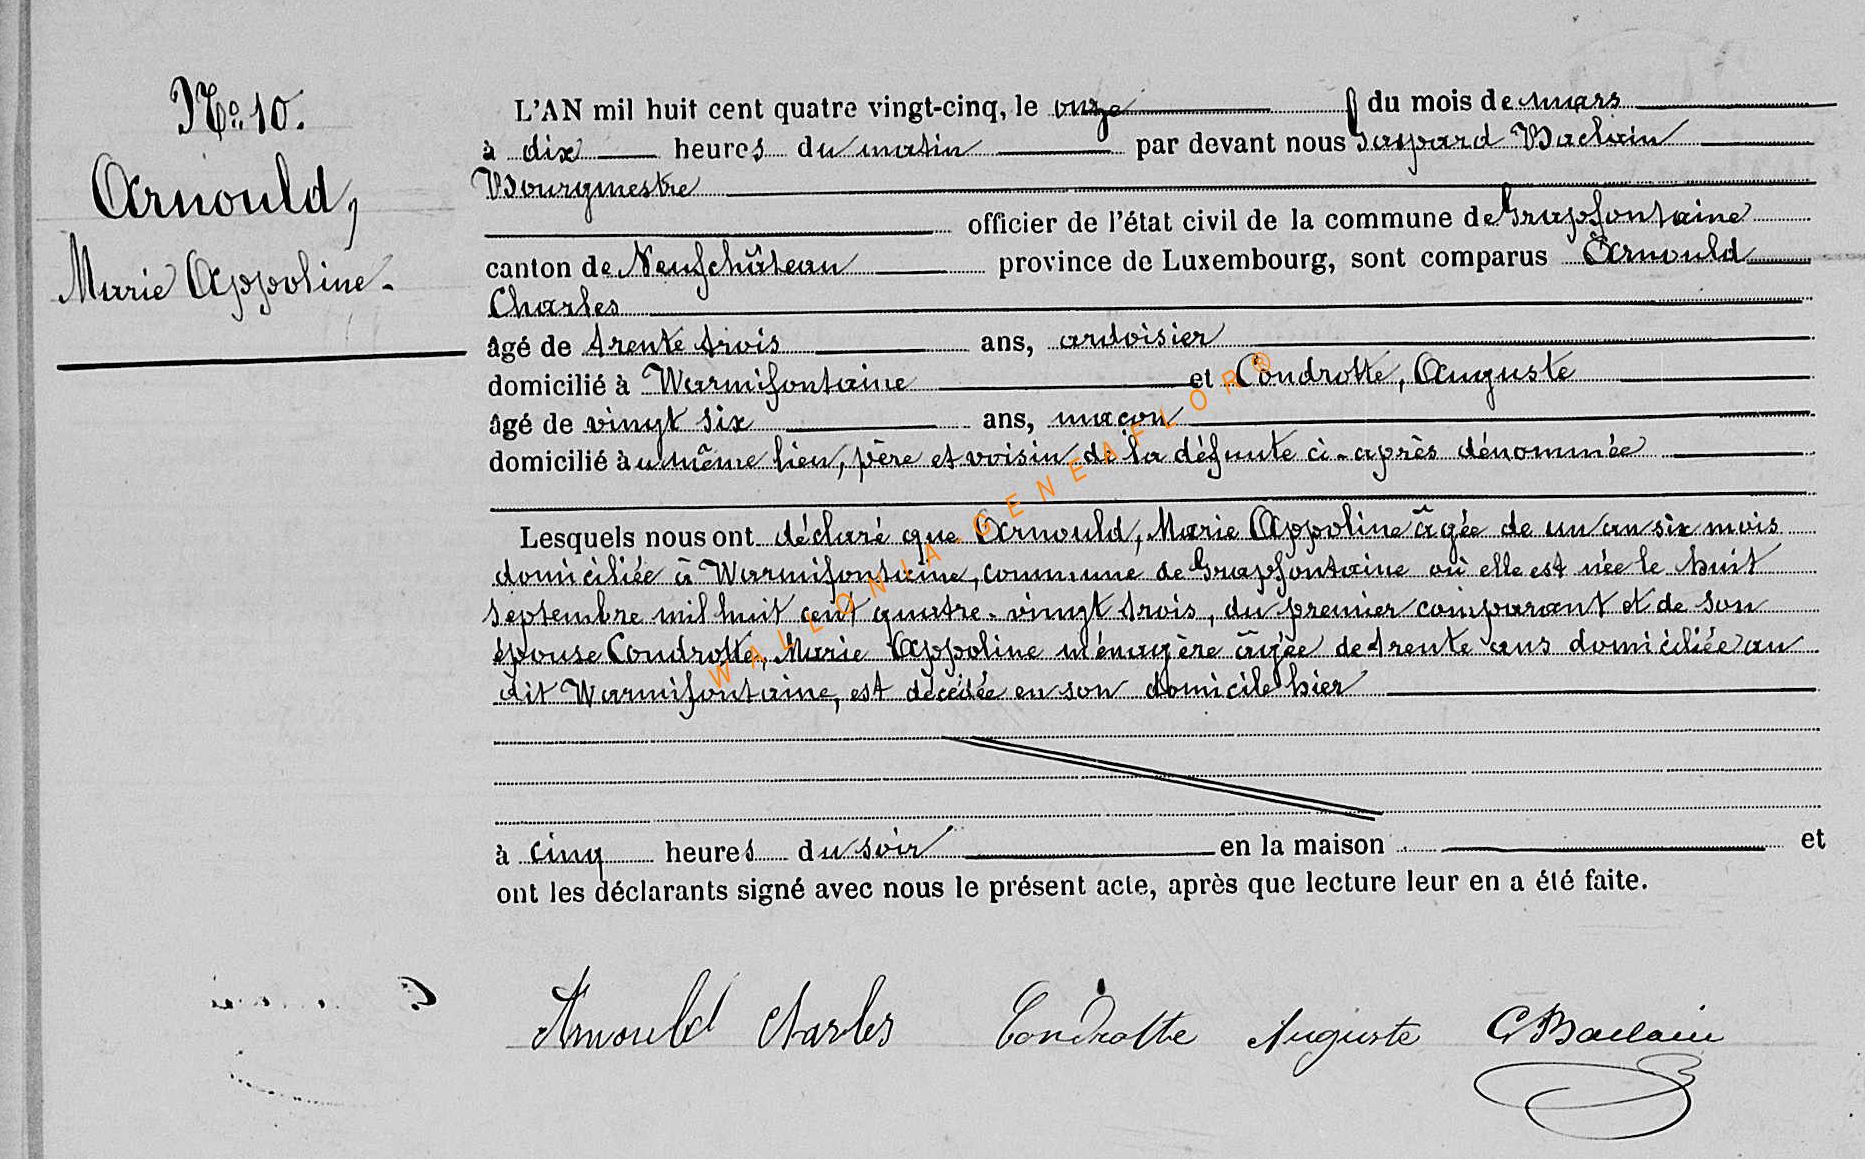 No. 10.
Arnould,
Marie Appoline.
L'AN mil huit cent quatre vingt-cinq, le onze du mois de mars
à dix heures du matin par devant nous Gaspard Baclain
Bourgmestre
officier de l'état civil de la commune de Grapfontaine
canton de Neufchâteau province de Luxembourg, sont comparus Arnould
Charles
âgé de trente trois ans, ardoisier
domicilié à Warmifontaine et Condrotte, Auguste
âgé de vingt six ans, maçon
domicilié au même lieu, père et voisin de la défunte ci-après dénommée
Lesquels nous ont déclaré que Arnould, Marie Appoline âgée de un an six mois
domiciliée à Warmifontaine, commune de Grapfontaine où elle est née le huit
septembre mil huit cent quatre-vingt trois, du premier comparant et de son
épouse Condrotte, Marie Appoline ménagère âgée de trente ans domiciliée au
dit Warmifontaine, est décédée en son domicile hier
à cinq heures du soir en la maison et
ont les déclarants signé avec nous le présent acte, après que lecture leur en a été faite.
Arnould Charles Condrotte Auguste G Baclain
WALLONIA GENEAFLOR®